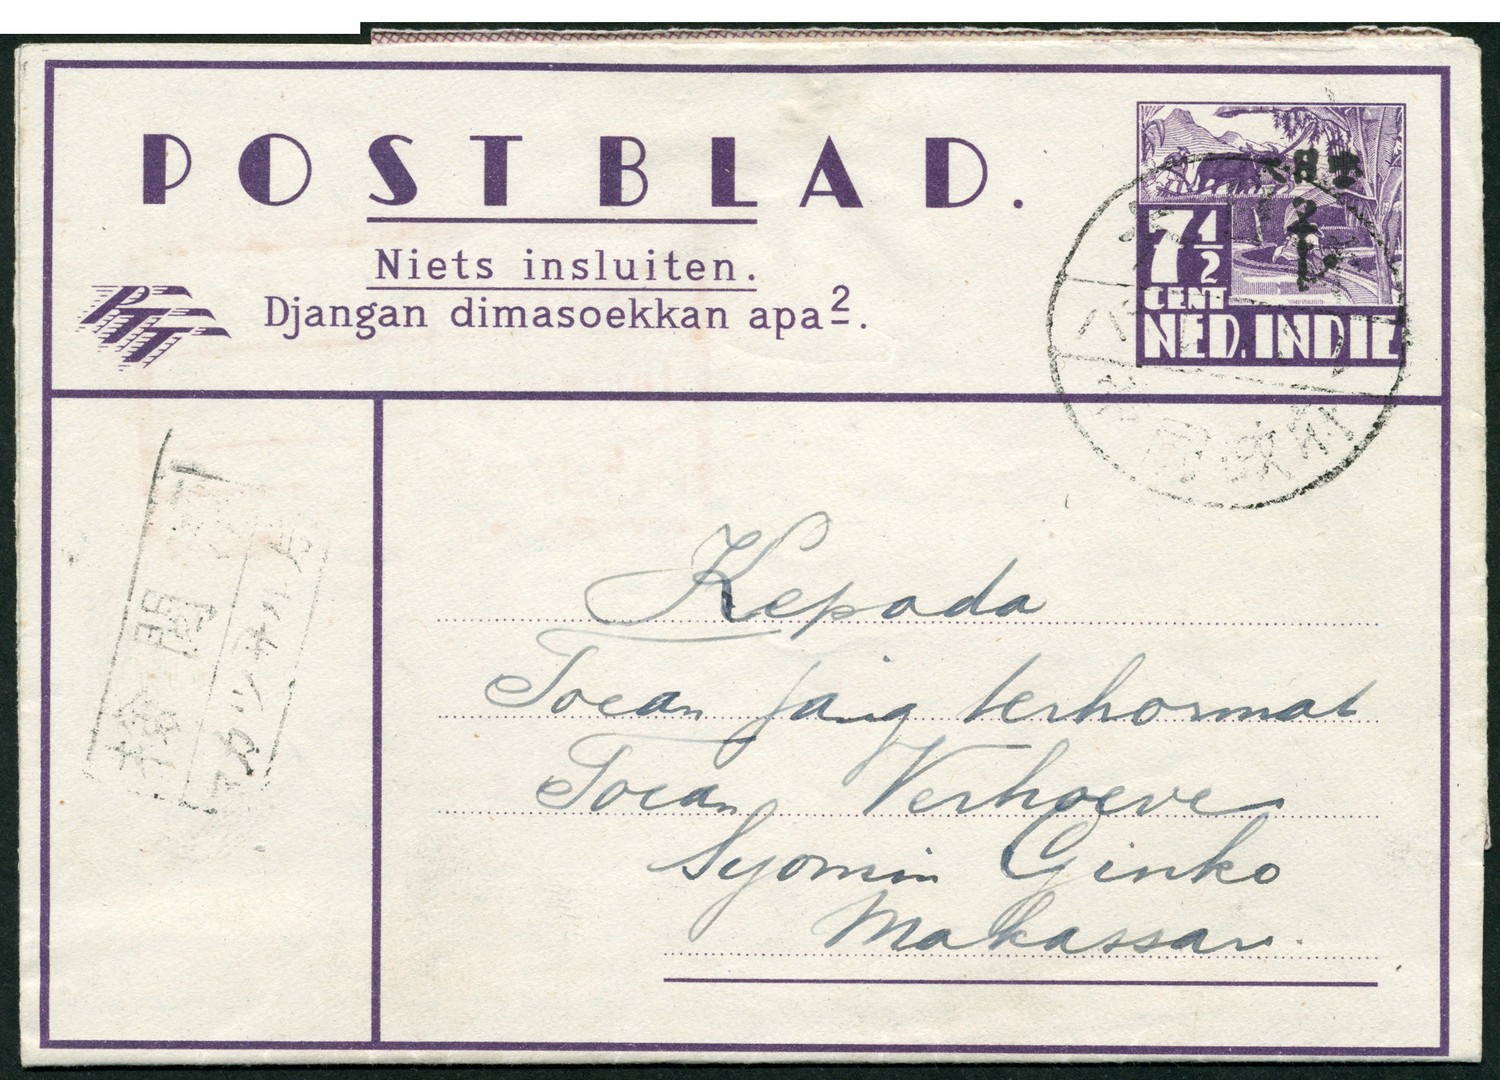 POSTBLAD.
Niets insluiten.
Djangan dimasoekkan apa2.
PTT
7 1/2
CENT
NED. INDIE
Kepada
Toean jang terhormat
Toean Verhoeve
Syomin Ginko
Makassar.